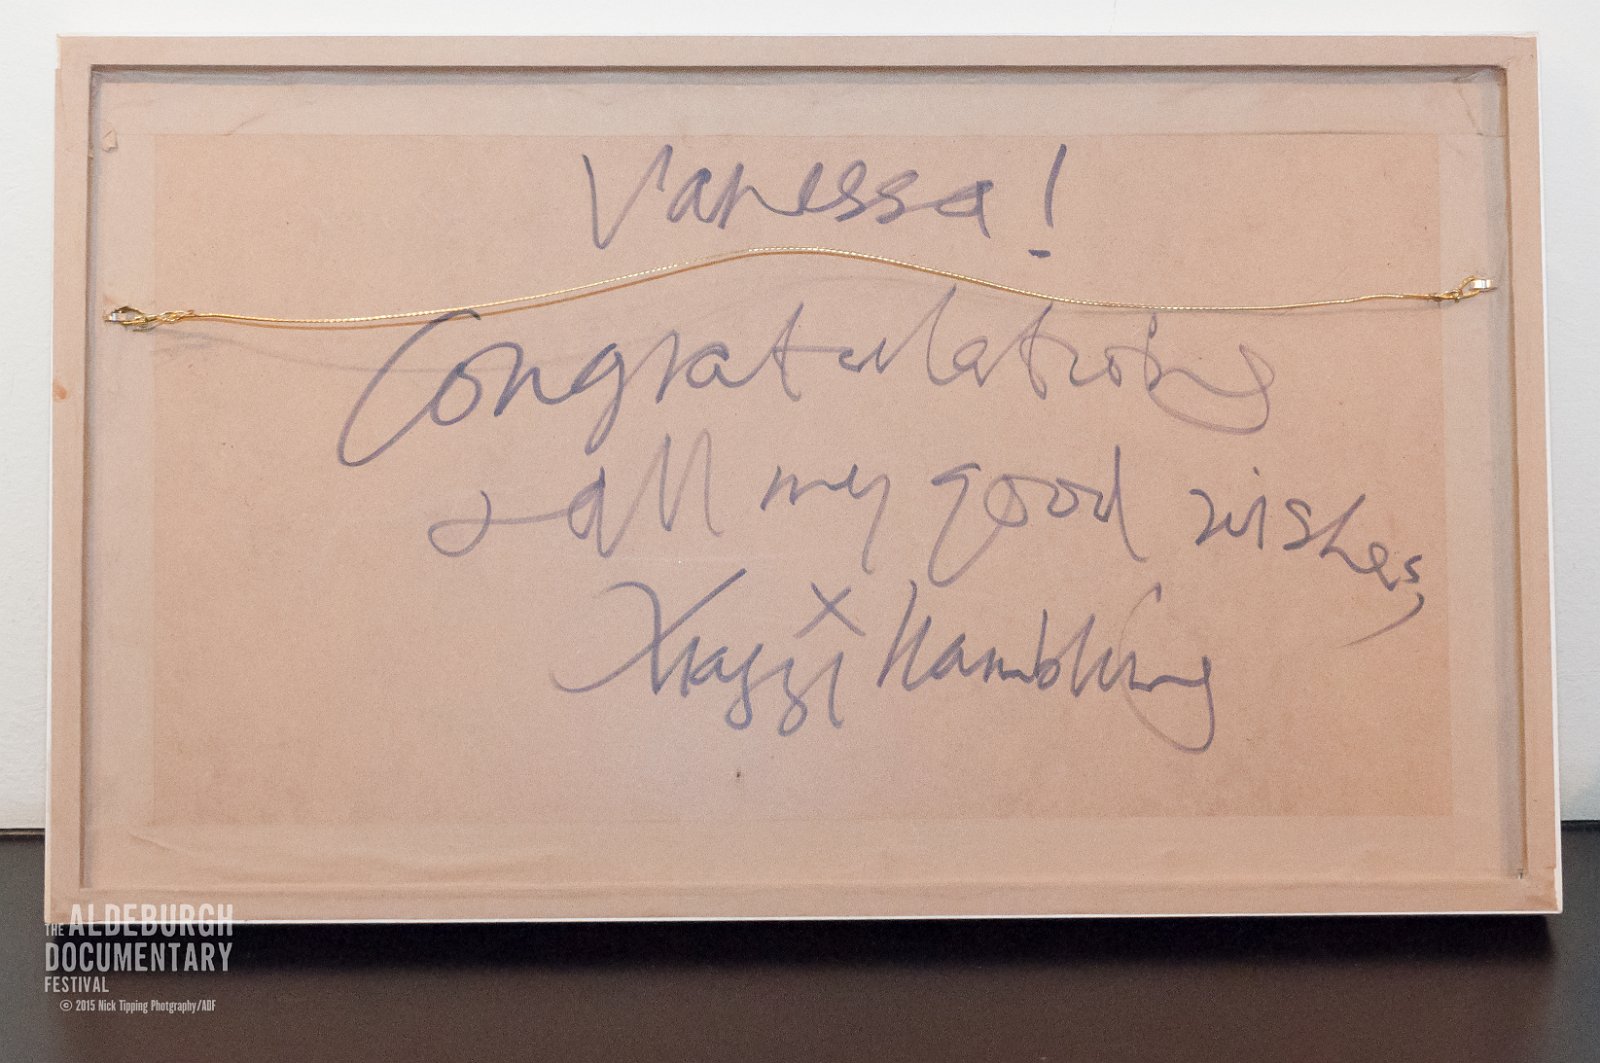 Vanessa!
Congratulations
& all my good wishes,
X
Maggi Hambling
THE ALDEBURGH
DOCUMENTARY
FESTIVAL
© 2015 Nick Tipping Photgraphy/ADF